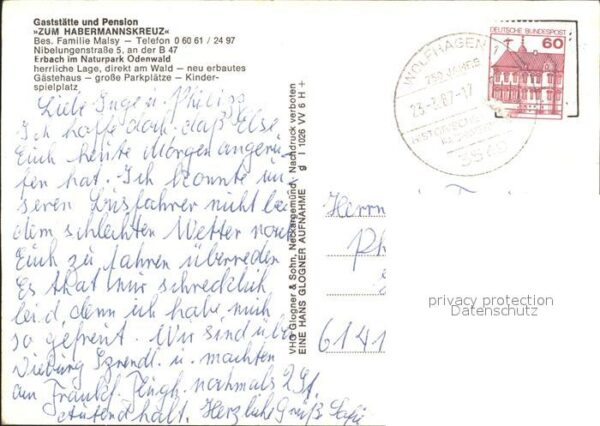 Gaststätte und Pension
»ZUM HABERMANNSKREUZ«
Bes. Familie Malsy – Telefon 0 60 61 / 24 97
Nibelungenstraße 5, an der B 47
Erbach im Naturpark Odenwald
herrliche Lage, direkt am Wald – neu erbautes
Gästehaus – große Parkplätze – Kinder-
spielplatz
Liebe Inge u. Philipp
Ich hoffe doch daß Else
Euch heute Morgen angeru-
fen hat. Ich konnte un-
seren Busfahrer nicht bei
dem schlechten Wetter nach
Euch zu fahren überreden
Es that mir schrecklich
leid, denn ich habe mich
so gefreut. Wir sind über
Dieburg u. machten
am Frankf. Flugh. nochmals 2 St.
Aufenthalt. Herzliche Grüße
VHG Glogner & Sohn, Neckargemünd, Nachdruck verboten
EINE HANS GLOGNER AUFNAHME g I 1026 VV 6 H +
WOLFHAGEN 1
750 JAHRE
23-3.87-17
HISTORISCHE
3549
DEUTSCHE BUNDESPOST
60
Herrn
Ph
6141
privacy protection
Datenschutz